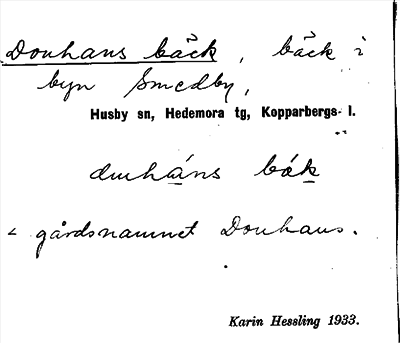 Donhans bäck, bäck i
byn Smedby,
Husby sn, Hedemora tg, Kopparbergs l.
bák
< gårdsnamnet Donhans.
Karin Hessling 1933.